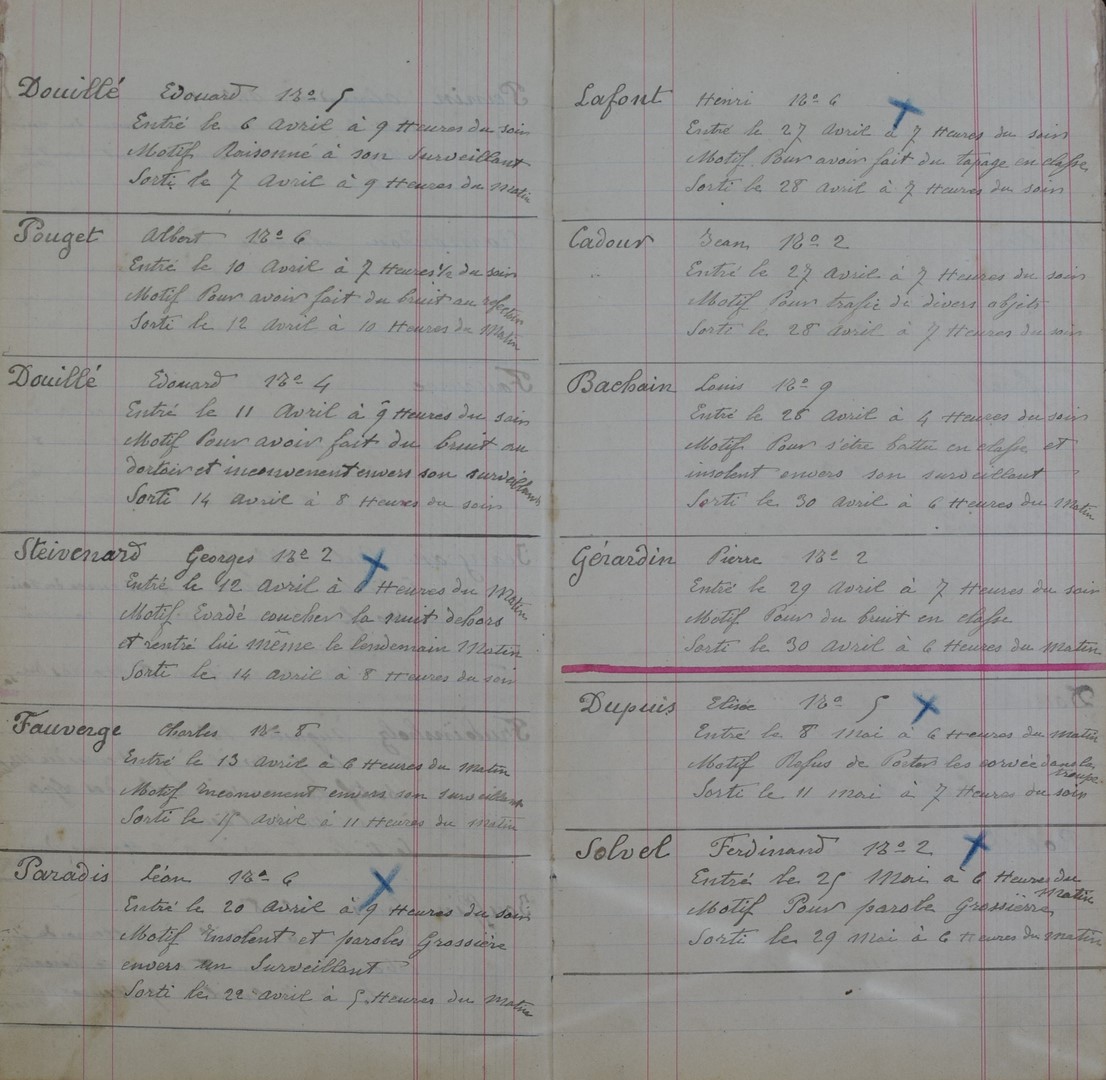 Douillé Edouard 12e 5
Entré le 6 Avril à 9 Heures du soir
Motif Raisonné à son Surveillant
Sorti le 7 Avril à 9 Heures du Matin
Pouget Albert 12e 6
Entré le 10 Avril à 7 Heures 1/2 du soir
Motif Pour avoir fait du bruit au refectoir
Sorti le 12 Avril à 10 Heures du Matin
Douillé Edouard 12e 4
Entré le 11 Avril à 9 Heures du soir
Motif Pour avoir fait du bruit au
dortoir et inconvenent envers son surveillant
Sorti 14 Avril à 8 Heures du soir
Steivenard Georges 12e 2
Entré le 12 Avril à Heures du Matin
Motif Evadé coucher la nuit dehors
et rentré lui même le lendemain Matin
Sorti le 14 Avril à 8 Heures du soir
Fauverge Charles 12e 8
Entré le 13 Avril à 6 Heures du Matin
Motif Inconvenent envers son surveillant
Sorti le 15 Avril à 11 Heures du Matin
Paradis Léon 12e 6
Entré le 20 Avril à 9 Heures du soir
Motif Insolent et paroles Grossière
envers un Surveillant
Sorti le 22 Avril à 5 Heures du Matin
Lafont Henri 12e 6
Entré le 27 Avril à 7 Heures du soir
Motif Pour avoir fait du tapage en classe
Sorti le 28 Avril à 7 Heures du soir
Cadour Jean 12e 2
Entré le 27 Avril à 7 Heures du soir
Motif Pour trafic de divers objets
Sorti le 28 Avril à 7 Heures du soir
Bachain Louis 12e 9
Entré le 28 Avril à 4 Heures du soir
Motif Pour s'être battu en classe et
insolent envers son surveillant
Sorti le 30 Avril à 6 Heures du Matin
Gérardin Pierre 12e 2
Entré le 29 Avril à 7 Heures du soir
Motif Pour du bruit en classe
Sorti le 30 Avril à 6 Heures du Matin
Dupuis Elisée 12e 5
Entré le 8 Mai à 6 Heures du Matin
Motif Refus de Porter les corvée dans les troupe
Sorti le 11 Mai à 7 Heures du soir
Solvel Ferdinand 12e 2
Entré le 25 Mai à 6 Heures du Matin
Motif Pour parole Grossière
Sorti le 29 Mai à 6 Heures du Matin